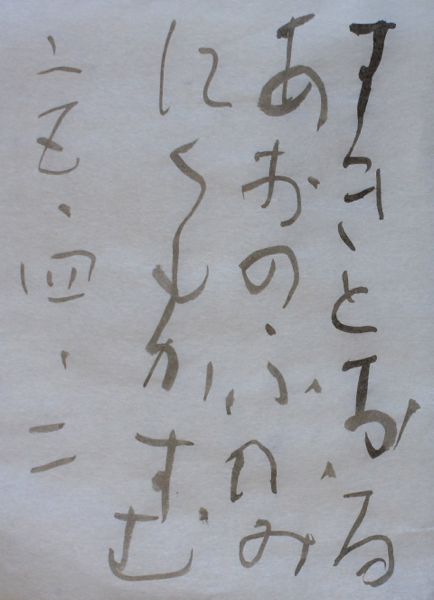 すきとおる
あおのふかみ
にくもかすむ
二五、四、二